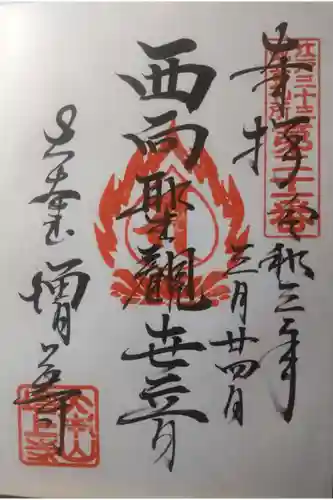 江戸三十三
観音札所
第二十一番
奉拝 令和三年
三月廿四日
西向聖観世音
大本山 増上寺
大本山
増上寺